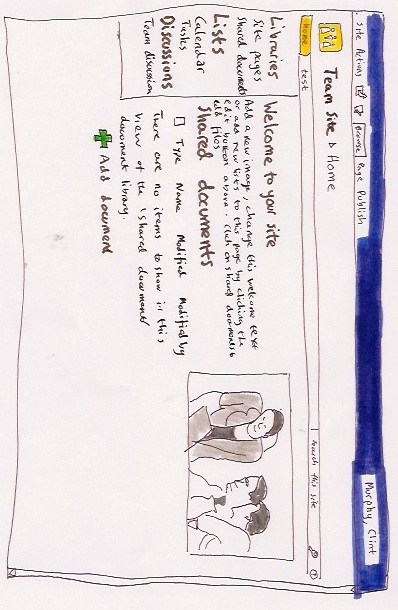 Site Actions Browse Page Publish
Murphy, Clint
Team Site ▷ Home
Home test
Search this site
Libraries
Site pages
Shared documents
Lists
Calendar
Tasks
Discussions
Team discussion
Welcome to your site
Add a new image, change this welcome text
or add new lists to this page by clicking the
edit button above. Click on shared documents to
add files
Shared documents
Type Name Modified Modified by
There are no items to show in this
view of the "shared documents"
document library.
Add document